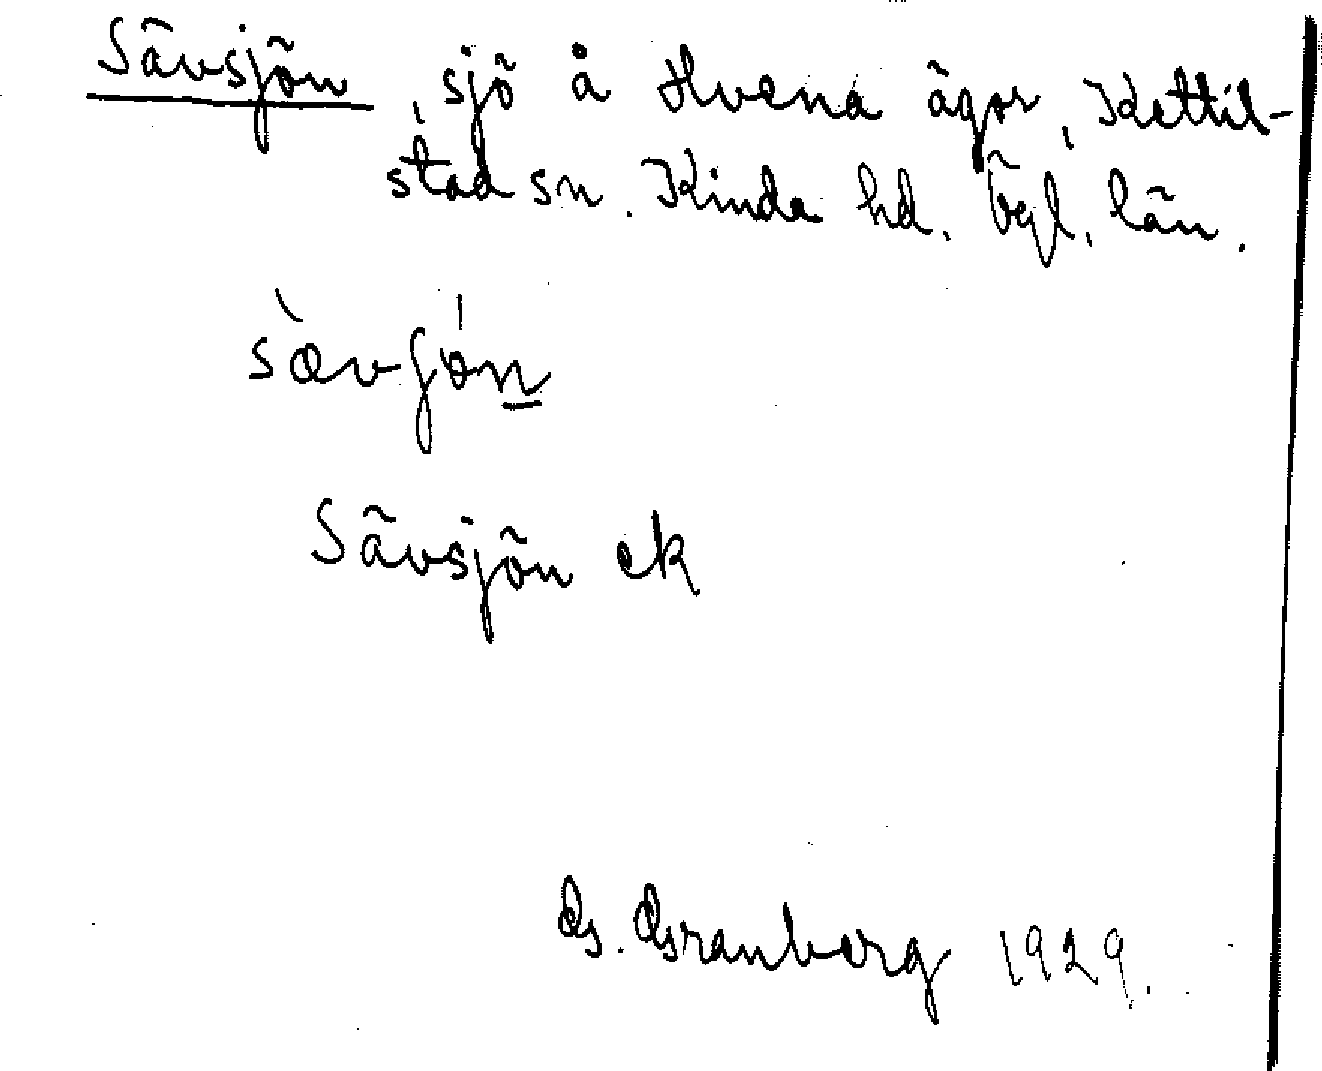 Sävsjön, sjö å Hvena ägor, Kettil-
stad sn. Kinda hd. Ögl. län.
sævjón
Sävsjön ek
G. Granberg 1929.